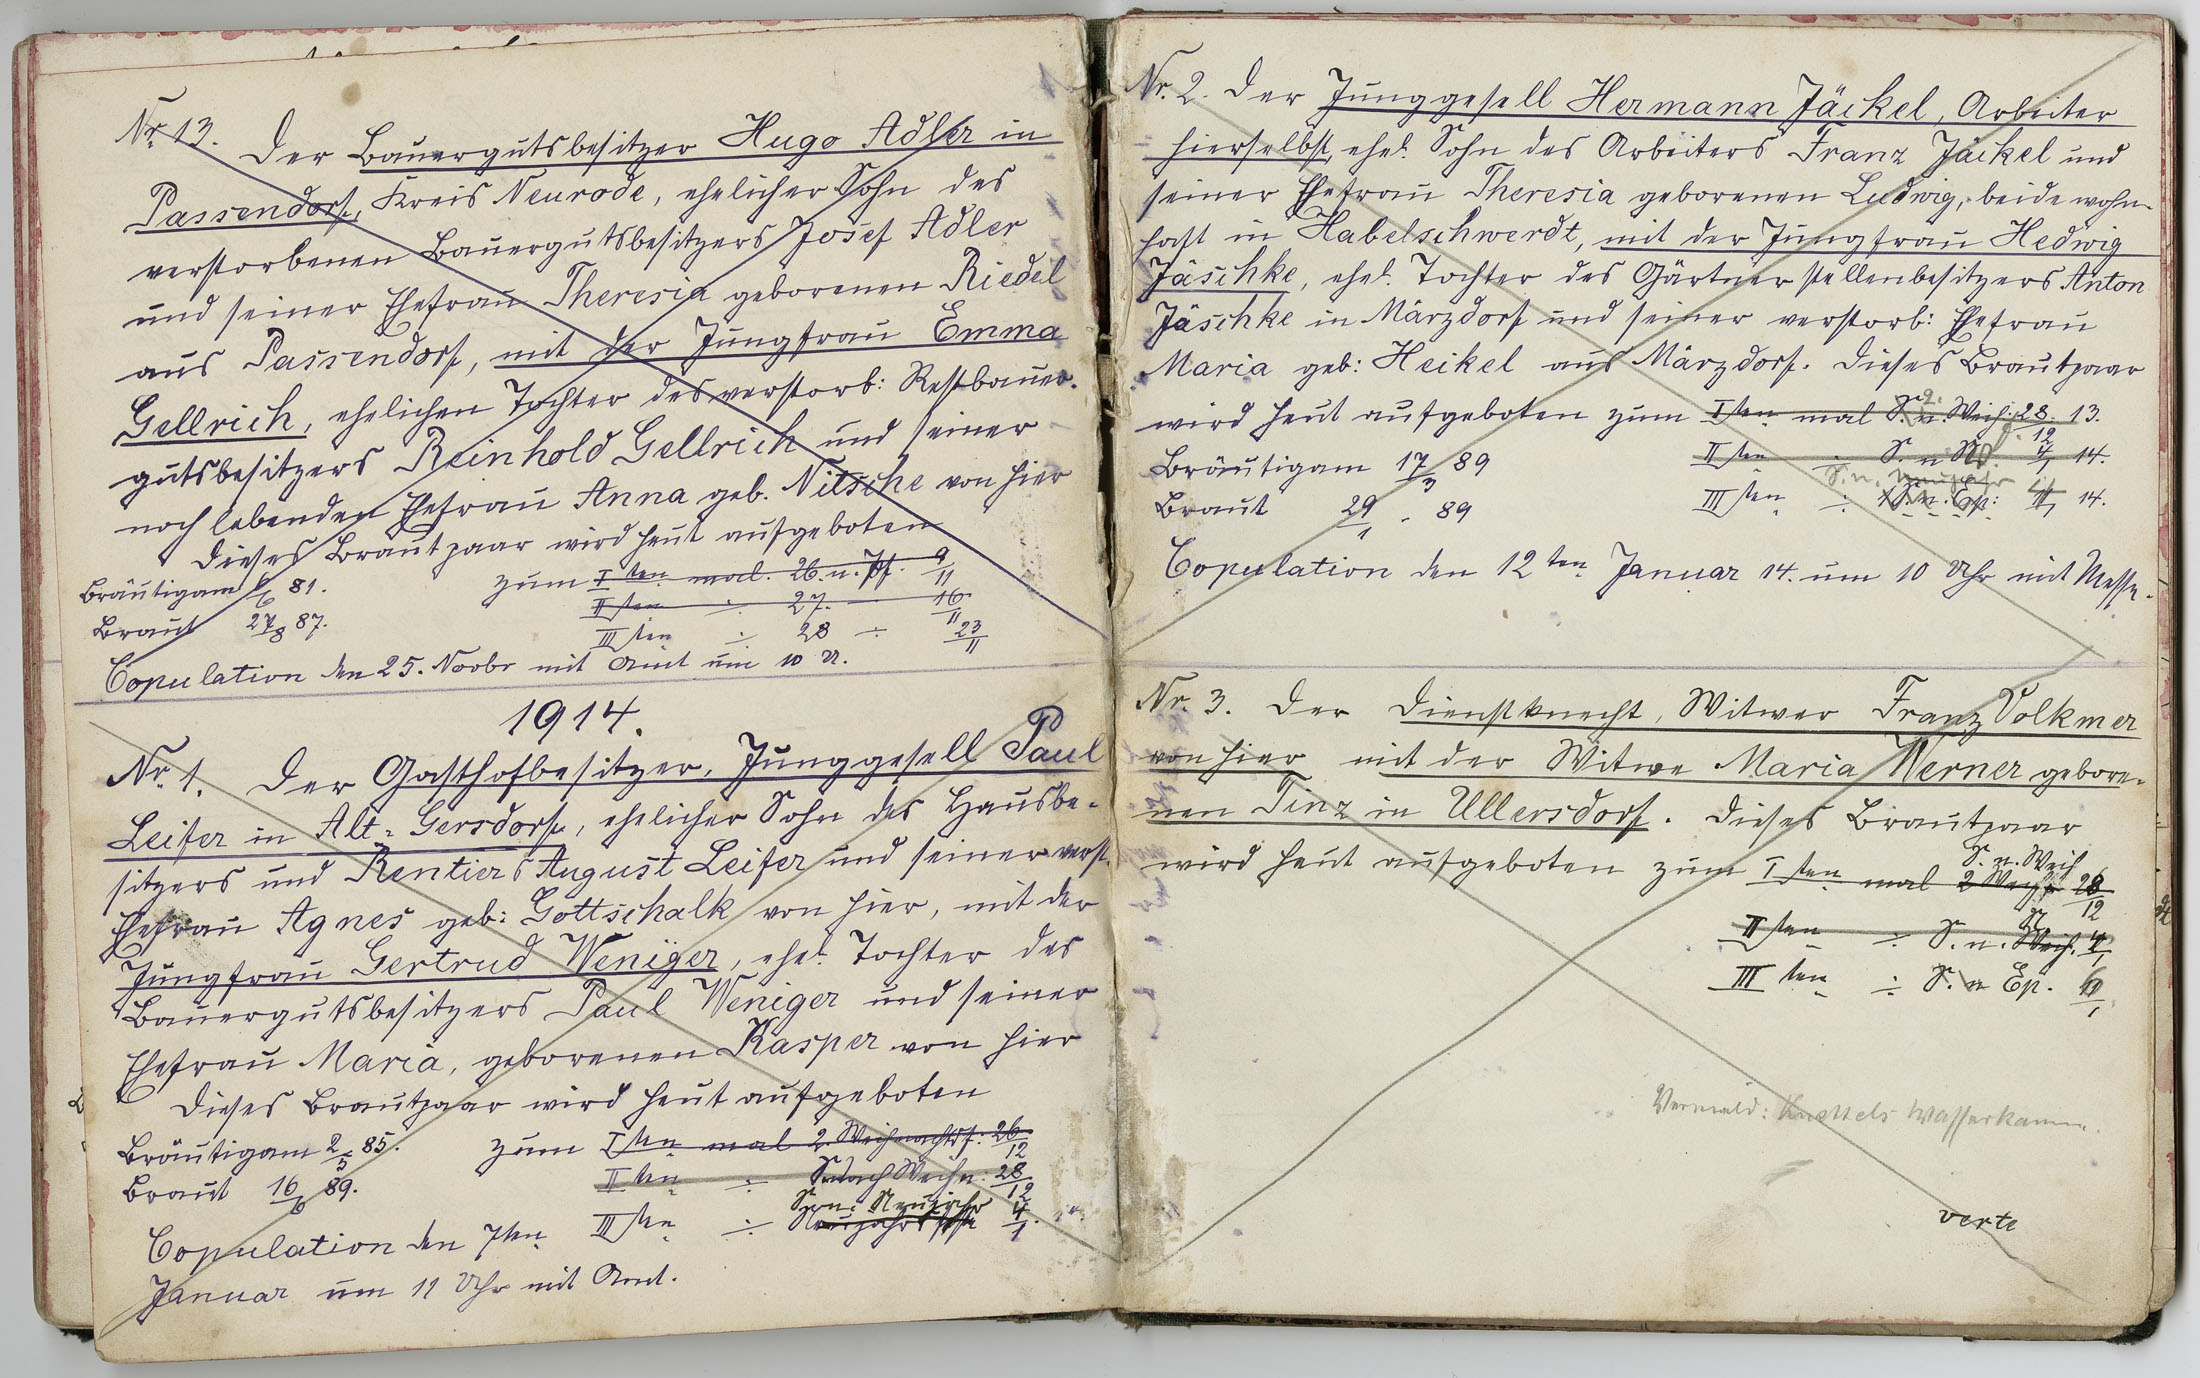 Nr. 13. Der Bauergutsbesitzer Hugo Adler in
Passendorf, Kreis Neurode, ehelicher Sohn des
verstorbenen Bauergutsbesitzers Josef Adler
und seiner Ehefrau Theresia geborenen Riedel
aus Passendorf, mit der Jungfrau Emma
Gellrich, ehelichen Tochter des verstorb: Restbauer-
gutsbesitzers Reinhold Gellrich und seiner
noch lebenden Ehefrau Anna geb. Nitsche von hier
Dieses Brautpaar wird heut aufgeboten
Bräutigam 81. zum I ten mal. 26. n. Pf. 9/11
Braut 27/8 87. II ten ÷ 27. — 16/11
III ten ÷ 28 ÷ 23/11
Copulation den 25. Novbr mit Amt um 10 U.
1914.
Nr. 1. Der Gasthofbesitzer, Junggesell Paul
Leifer in Alt-Gersdorf, ehelicher Sohn des Hausbe-
sitzers und Rentiers August Leifer und seiner verst.
Ehefrau Agnes geb: Gottschalk von hier, mit der
Jungfrau Gertrud Weniger, ehel. Tochter des
Bauergutsbesitzers Paul Weniger und seiner
Ehefrau Maria, geborenen Kasper von hier
Dieses Brautpaar wird heut aufgeboten
Bräutigam 2/5 85. zum I ten mal 2. Weihnachtsf: 26/12
Braut 16/6 89. II ten ÷ S. nach Weihn: 28/12
S. n. Neujahr
III ten ÷ Neujahrsfeste 4/1.
Copulation den 7ten
Januar um 11 Uhr mit Amt.
Nr. 2. Der Junggesell Hermann Jäckel, Arbeiter
hierselbst, ehel. Sohn des Arbeiters Franz Jäckel und
seiner Ehefrau Theresia geborenen Ludwig, beide wohn-
haft in Habelschwerdt, mit der Jungfrau Hedwig
Jäschke, ehel. Tochter des Gärtnerstellenbesitzers Anton
Jäschke in Märzdorf und seiner verstorb: Ehefrau
Maria geb: Heikel aus Märzdorf. Dieses Brautpaar
wird heut aufgeboten zum I ten mal S. n. Weih. 28/12 13.
Bräutigam 17/3 89 II ten ÷ S. n 4/1 14.
S. n. Neujahr
Braut 29/1 - 89 III ten ÷ S. n. Ep: 11/1 14.
Copulation den 12 ten Januar 14. um 10 Uhr mit Messe.
Nr. 3. Der Dienstknecht, Witwer Franz Volkmer
von hier mit der Witwe Maria Werner gebore-
nen Tinz in Ullersdorf. Dieses Brautpaar
S. n. Weih
wird heut aufgeboten zum I ten mal 2 Weih 28/12
II ten ÷ S. n. Weih. 4/1
III ten ÷ S. n Ep.
verte